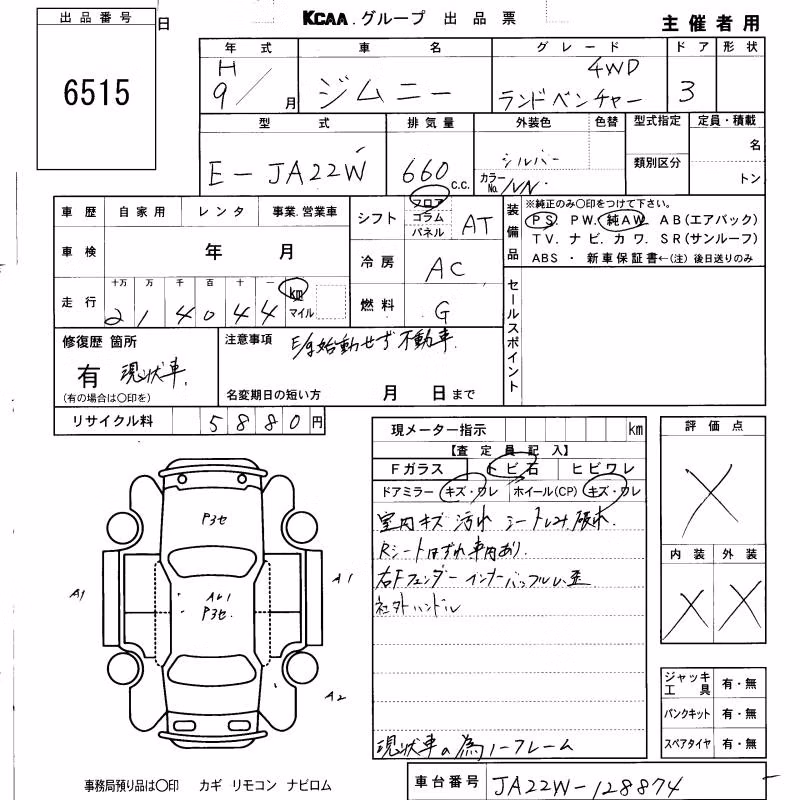 出品番号
日
6515
KCAA.グループ 出品票
主催者用
年式
車名
グレード
ドア
形状
H
9/月
ジムニー
4WD
ランドベンチャー
3
型式
排気量
外装色
色替
型式指定
定員・積載
類別区分
名
トン
E-JA22W
660 c.c.
シルバー
カラーNo.
車歴 自家用 レンタ 事業.営業車
シフト
フロア
コラム
パネル
AT
装備品
※純正のみ〇印をつけて下さい。
PS. PW. 純AW. AB(エアバック)
TV. ナビ. カワ. SR(サンルーフ)
ABS ・ 新車保証書←(注) 後日送りのみ
車検
年 月
冷房
AC
走行
十万 万 千 百 十 一
2 1 4 0 4 4
km
マイル
燃料
G
セールスポイント
修復歴 箇所
有 現状車.
(有の場合は〇印を)
注意事項 E/g始動せず不動車.
名変期日の短い方 月 日まで
リサイクル料 5 8 8 0 円
現メーター指示 km
【査定員記入】
Fガラス トビ石 ヒビワレ
ドアミラー キズ・ワレ ホイール(CP) キズ・ワレ
室内キズ 汚れ シートしみ 破れ.
Rシートはずれ車内あり.
右Fフェンダーインナーバッフルム歪
社外ハンドル
現状車の為ノークレーム
評価点
内装
外装
P3セ
AL1
P3セ.
A1
A1
A2
ジャッキ工具 有・無
パンクキット 有・無
スペアタイヤ 有・無
事務局預り品は〇印 カギ リモコン ナビロム
車台番号 JA22W-128874